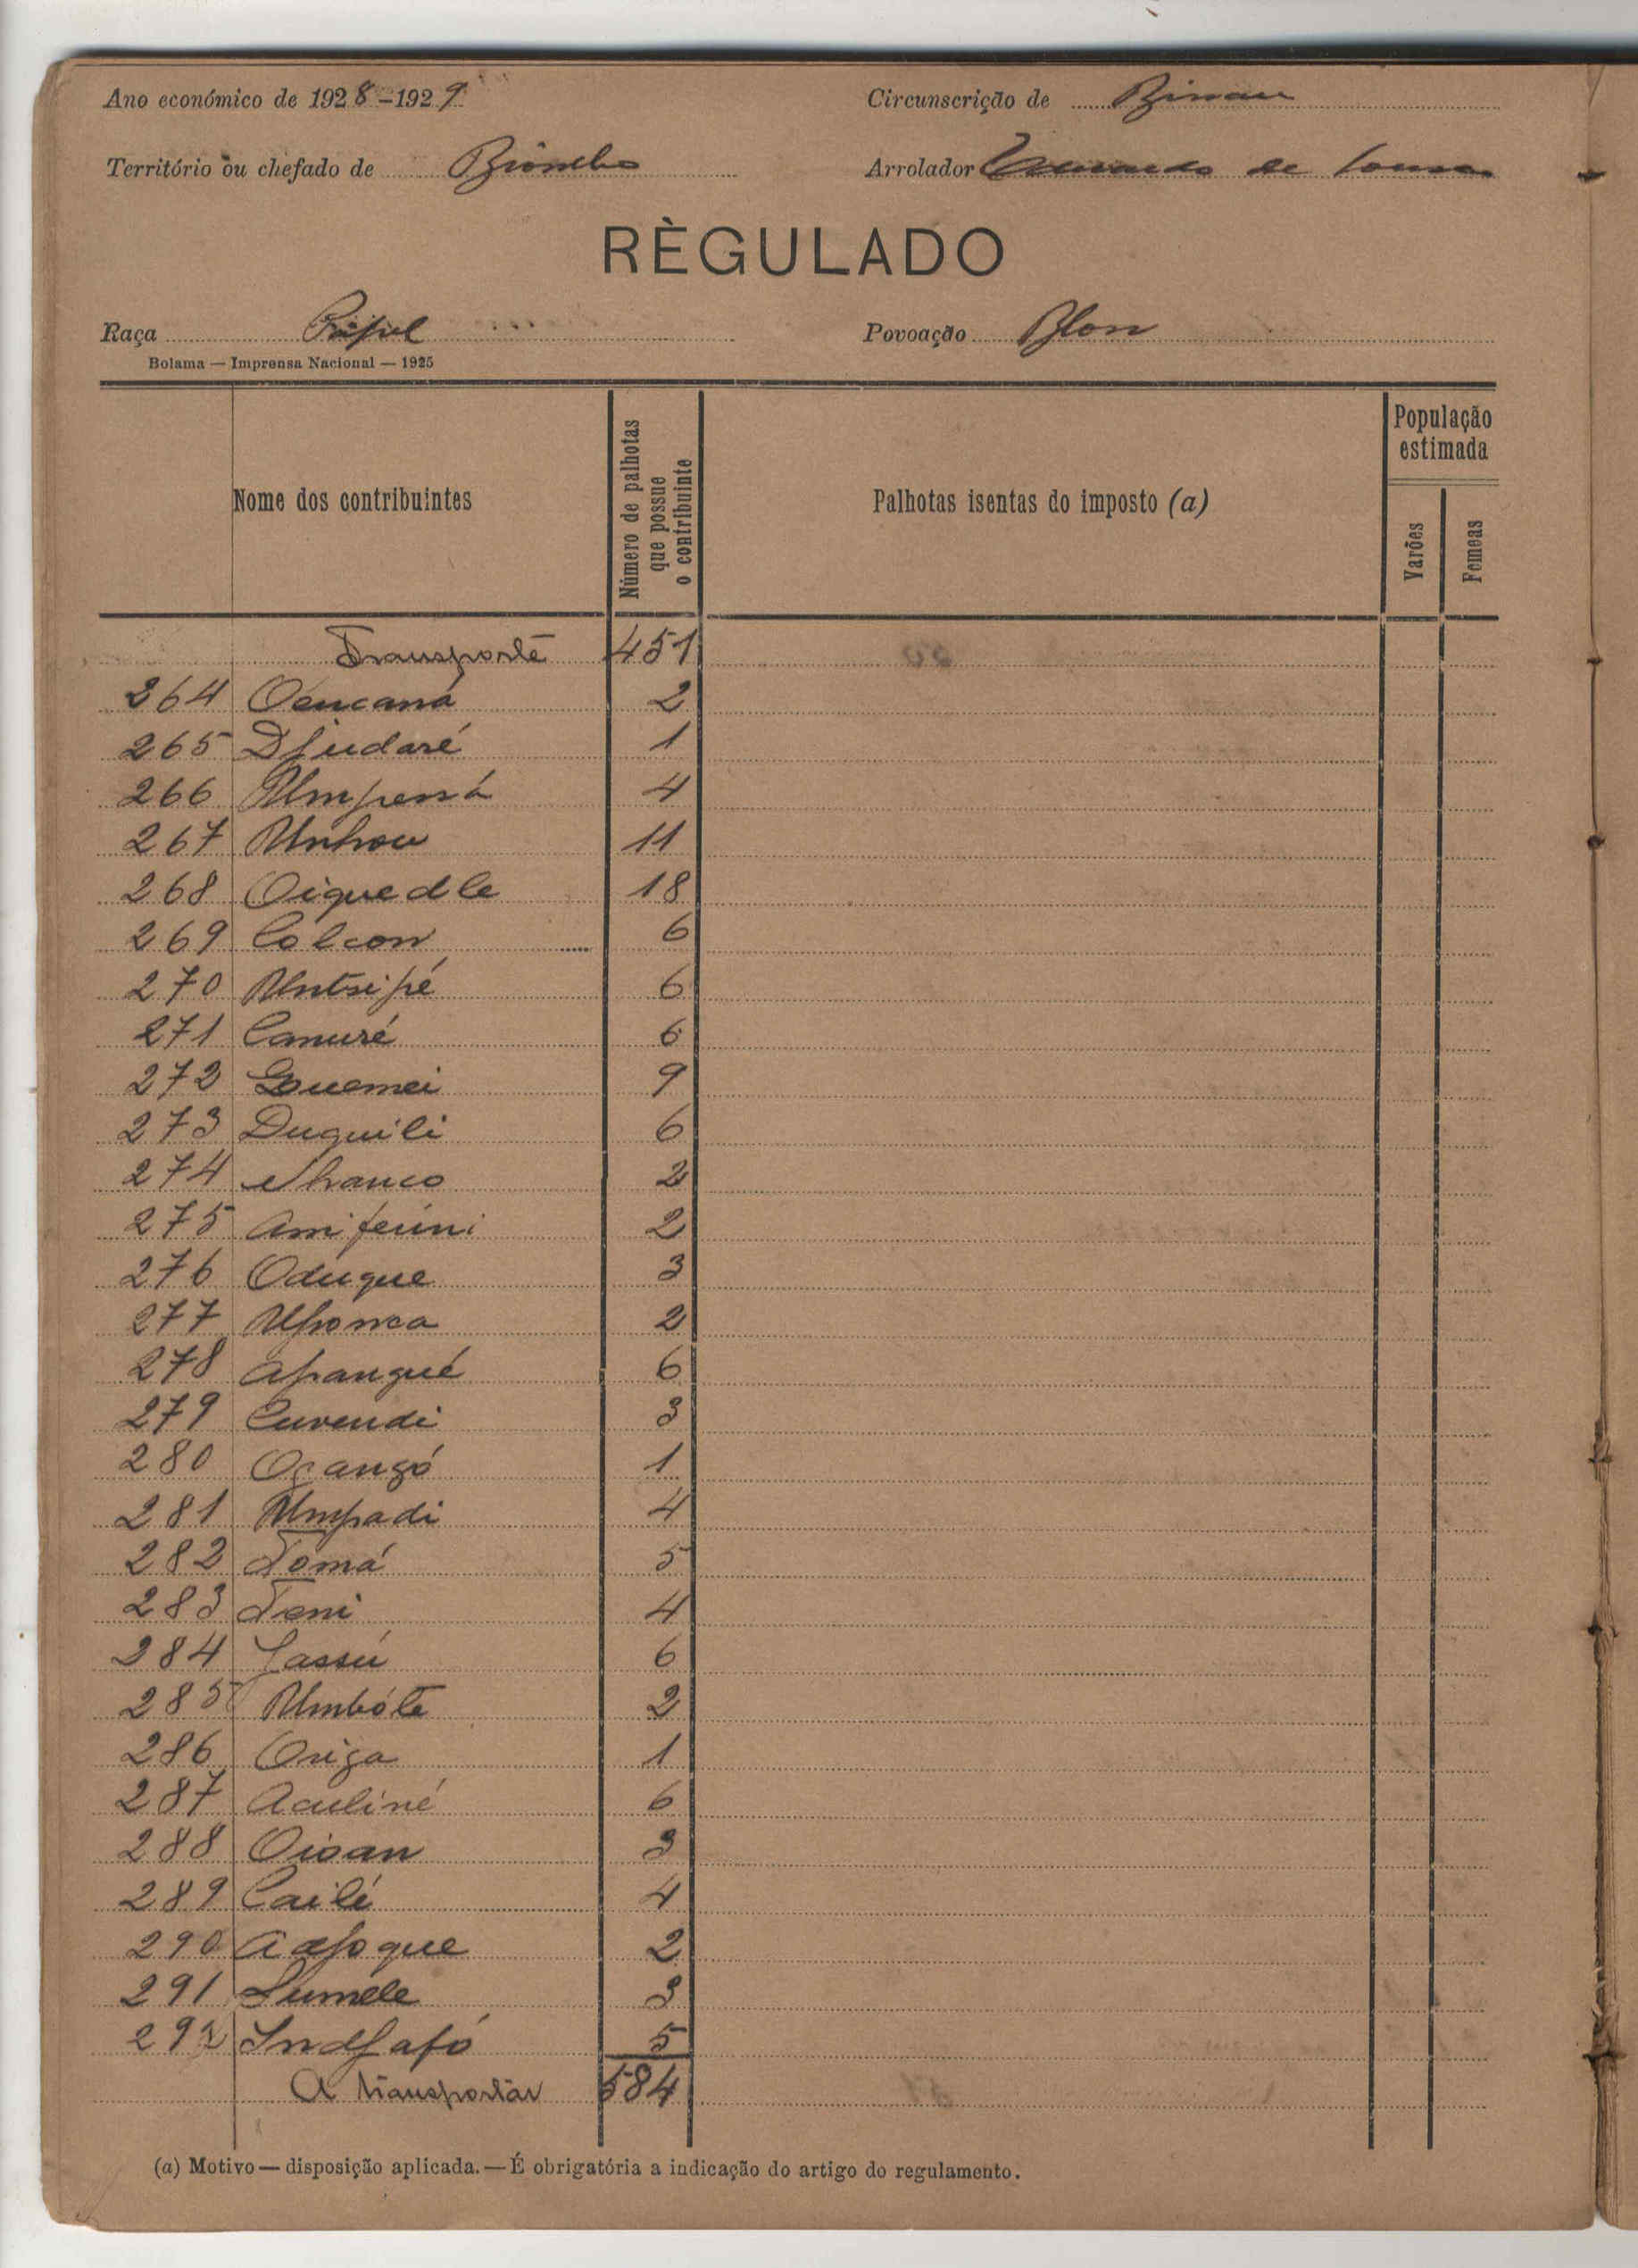 Ano económico de 1928-1929 Circunscrição de Bissau
Território ou chefado de Biombo Arrolador de Sousa
RÈGULADO
Raça Papel Povoação Blon
Bolama — Imprensa Nacional — 1925
Nome dos contribuintes
Número de palhotas que possue o contribuinte
Palhotas isentas do imposto (a)
População estimada
Varões
Femeas
Transporte 451
264 Oencaná 2
265 Djudaré 1
266 Umpená 4
267 Unhou 11
268 Oiquedle 18
269 Cólcon 6
270 Untsipé 6
271 Canuré 6
272 9
273 Duquili 6
274 Nhanco 2
275 Amiferini 2
276 Oduque 3
277 2
278 Apangué 6
279 Curendi 3
280 Oçangó 1
281 Umpadi 4
282 Tomá 5
283 Teni 4
284 Jassú 6
285 Umbóte 2
286 Origa 1
287 Aculiné 6
288 Oioan 3
289 Cailé 4
290 2
291 Sumele 3
292 Indjafó 5
A transportar 584
(a) Motivo — disposição aplicada. — É obrigatória a indicação do artigo do regulamento.